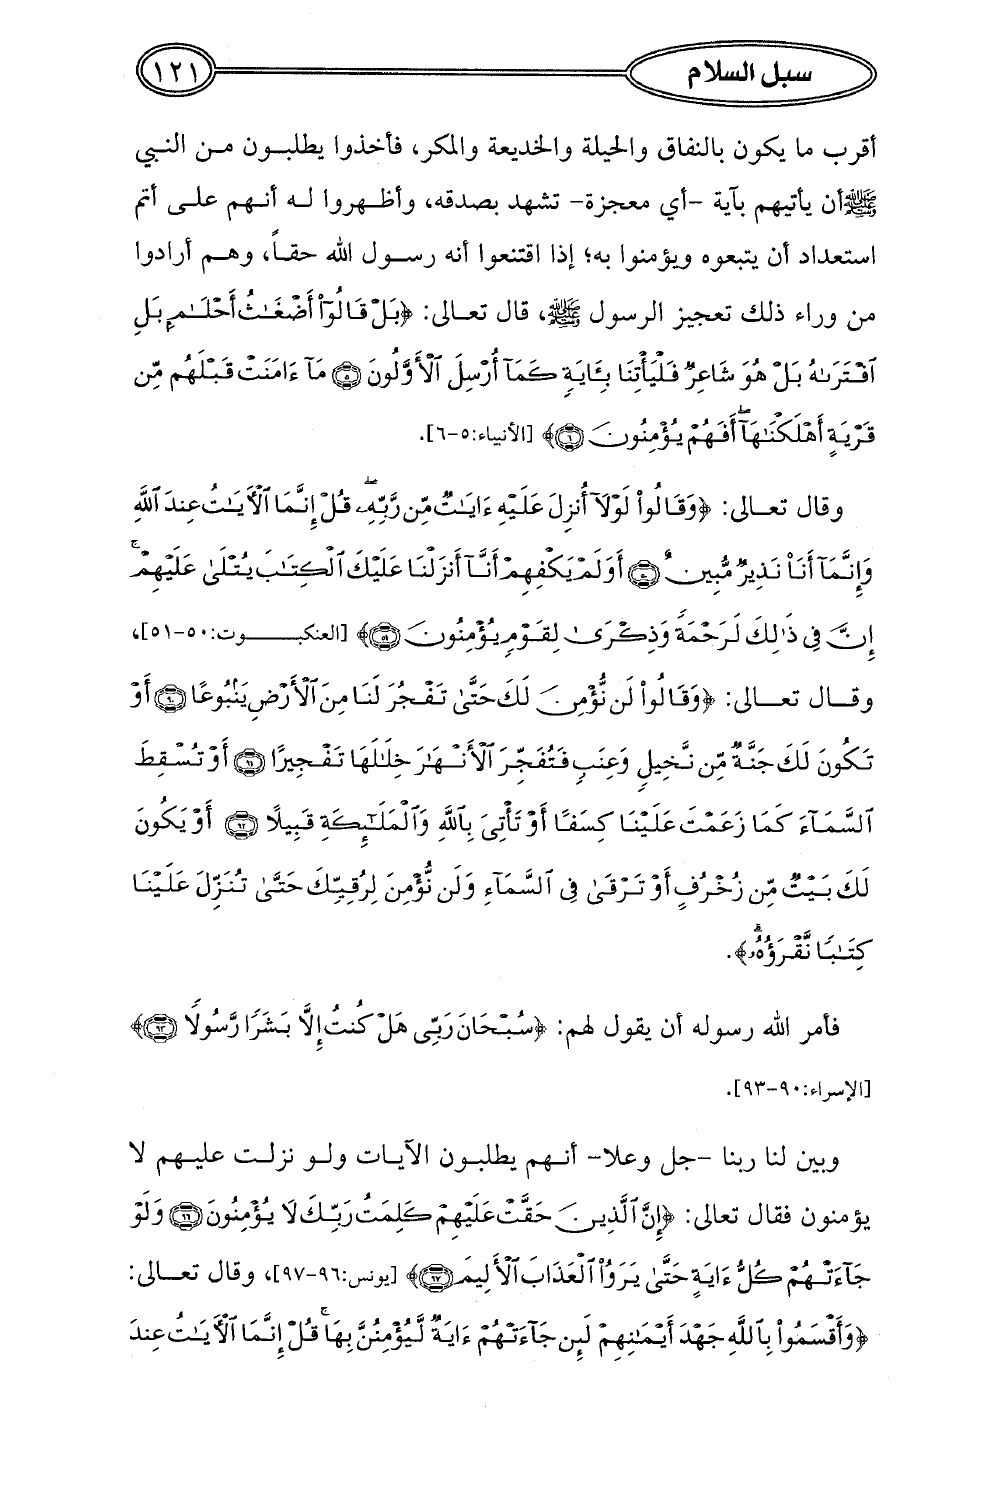 سبل السلام ١٢١
أقرب ما يكون بالنفاق والحيلة والخديعة والمكر، فأخذوا يطلبون من النبي
ﷺ أن يأتيهم بآية -أي معجزة- تشهد بصدقه، وأظهروا له أنهم على أتم
استعداد أن يتبعوه ويؤمنوا به؛ إذا اقتنعوا أنه رسول الله حقاً، وهم أرادوا
من وراء ذلك تعجيز الرسول ﷺ، قال تعالى: ﴿بَلْ قَالُوٓا۟ أَضْغَـٰثُ أَحْلَـٰمٍۭ بَلِ
ٱفْتَرَىٰهُ بَلْ هُوَ شَاعِرٌ فَلْيَأْتِنَا بِـَٔايَةٍ كَمَآ أُرْسِلَ ٱلْأَوَّلُونَ ۝٥ مَآ ءَامَنَتْ قَبْلَهُم مِّن
قَرْيَةٍ أَهْلَكْنَـٰهَآ ۖ أَفَهُمْ يُؤْمِنُونَ ۝٦﴾ [الأنبياء:٥-٦].
وقال تعالى: ﴿وَقَالُوا۟ لَوْلَآ أُنزِلَ عَلَيْهِ ءَايَـٰتٌ مِّن رَّبِّهِۦ ۖ قُلْ إِنَّمَا ٱلْـَٔايَـٰتُ عِندَ ٱللَّهِ
وَإِنَّمَآ أَنَا۠ نَذِيرٌ مُّبِينٌ ۝٥٠ أَوَلَمْ يَكْفِهِمْ أَنَّآ أَنزَلْنَا عَلَيْكَ ٱلْكِتَـٰبَ يُتْلَىٰ عَلَيْهِمْ ۚ
إِنَّ فِى ذَٰلِكَ لَرَحْمَةً وَذِكْرَىٰ لِقَوْمٍ يُؤْمِنُونَ ۝٥١﴾ [العنكبوت:٥٠-٥١]،
وقال تعالى: ﴿وَقَالُوا۟ لَن نُّؤْمِنَ لَكَ حَتَّىٰ تَفْجُرَ لَنَا مِنَ ٱلْأَرْضِ يَنۢبُوعًا ۝٩٠ أَوْ
تَكُونَ لَكَ جَنَّةٌ مِّن نَّخِيلٍ وَعِنَبٍ فَتُفَجِّرَ ٱلْأَنْهَـٰرَ خِلَـٰلَهَا تَفْجِيرًا ۝٩١ أَوْ تُسْقِطَ
ٱلسَّمَآءَ كَمَا زَعَمْتَ عَلَيْنَا كِسَفًا أَوْ تَأْتِىَ بِٱللَّهِ وَٱلْمَلَـٰٓئِكَةِ قَبِيلًا ۝٩٢ أَوْ يَكُونَ
لَكَ بَيْتٌ مِّن زُخْرُفٍ أَوْ تَرْقَىٰ فِى ٱلسَّمَآءِ وَلَن نُّؤْمِنَ لِرُقِيِّكَ حَتَّىٰ تُنَزِّلَ عَلَيْنَا
كِتَـٰبًا نَّقْرَؤُهُۥ ۗ﴾.
فأمر الله رسوله أن يقول لهم: ﴿سُبْحَانَ رَبِّى هَلْ كُنتُ إِلَّا بَشَرًا رَّسُولًا ۝٩٣﴾
[الإسراء:٩٠-٩٣].
وبين لنا ربنا -جل وعلا- أنهم يطلبون الآيات ولو نزلت عليهم لا
يؤمنون فقال تعالى: ﴿إِنَّ ٱلَّذِينَ حَقَّتْ عَلَيْهِمْ كَلِمَتُ رَبِّكَ لَا يُؤْمِنُونَ ۝٩٦ وَلَوْ
جَآءَتْهُمْ كُلُّ ءَايَةٍ حَتَّىٰ يَرَوُا۟ ٱلْعَذَابَ ٱلْأَلِيمَ ۝٩٧﴾ [يونس:٩٦-٩٧]، وقال تعالى:
﴿وَأَقْسَمُوا۟ بِٱللَّهِ جَهْدَ أَيْمَـٰنِهِمْ لَئِن جَآءَتْهُمْ ءَايَةٌ لَّيُؤْمِنُنَّ بِهَا ۚ قُلْ إِنَّمَا ٱلْـَٔايَـٰتُ عِندَ